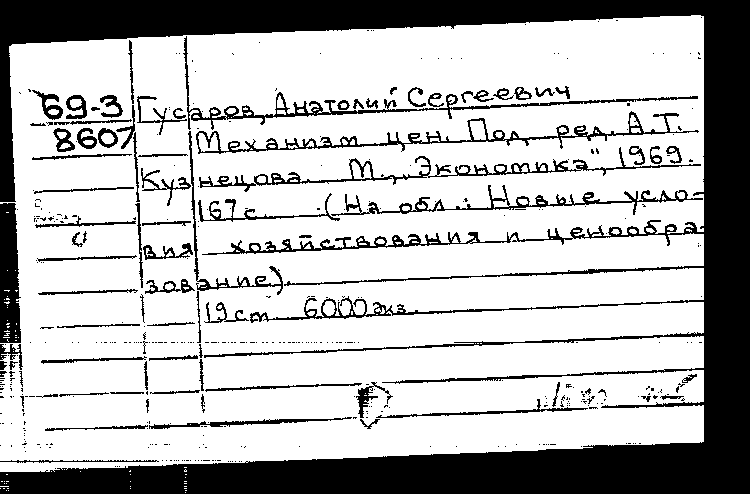 69-3 Гусаров, Анатолий Сергеевич
8607 Механизм цен. Под ред. А.Т.
Кузнецова. М., „Экономика", 1969.
167 с. (На обл.: Новые усло-
вия хозяйствования и ценообра-
зование).
19 cm 6000 экз.